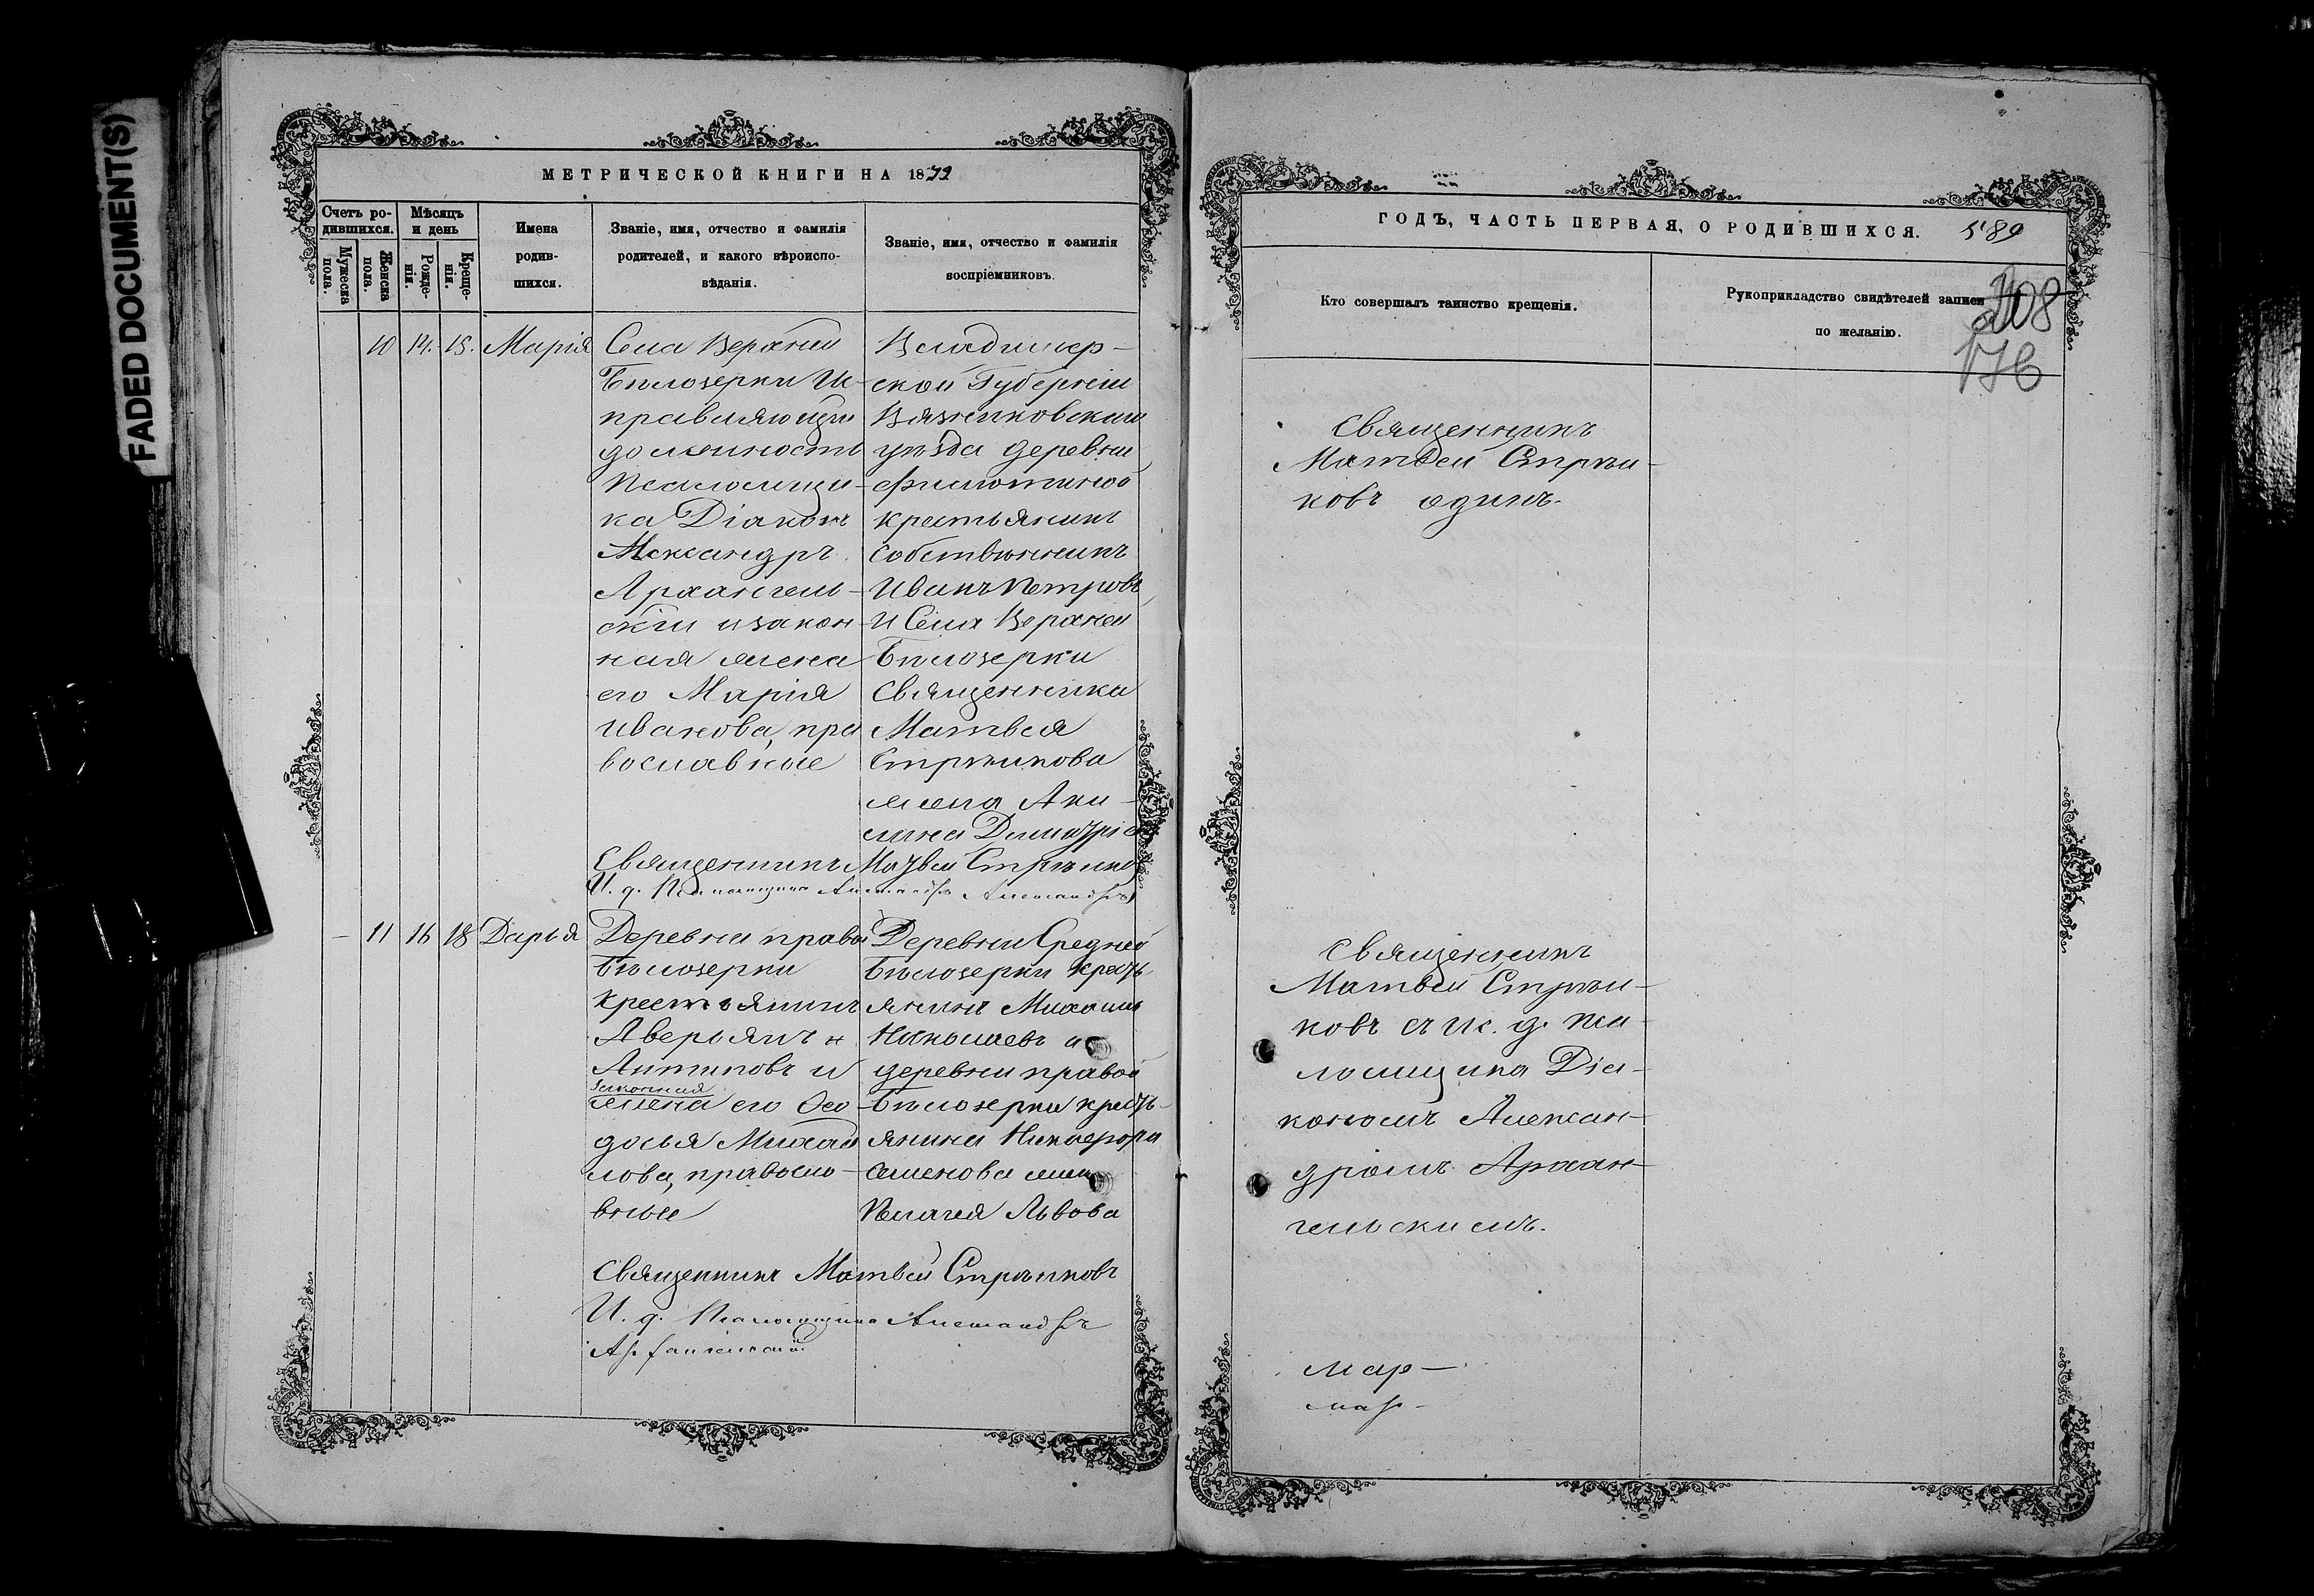 FADED DOCUMENT(S)
МЕТРИЧЕСКОЙ КНИГИ НА 1872
Счетъ ро-
дившихся.
Мужеска
пола.
Женска
пола.
Мѣсяцъ
и день
Рожде-
нія.
Креще-
нія.
Имена
родив-
шихся.
Званіе, имя, отчество и фамилія
родителей, и какого вѣроиспо-
вѣданія.
Званіе, имя, отчество и фамилія
воспріемниковъ.
10 14. 15. Марія
Села Верхней
Бѣлозерки Ис-
правляющій
должность
Псаломщи-
ка Діаконъ
Александръ
Архангель-
скій и закон-
ная жена
его Марія
Иванова, пра
вославные
Владимер-
ской Губерніи
Вязниковскаго
уѣзда деревни
крестьянинъ
собственникъ
Иванъ Петровъ
и Села Верхней
Бѣлозерки
Священника
Матвея
Стрѣлкова
жена Аки-
лина Димитріева
Священникъ Матвей Стрѣлковъ
И. д. Псаломщика Александръ
11 16 18 Дарья
Деревни правой
Бѣлозерки
Крестьянинъ
Аверьянъ
Антиповъ и
законная
жена его Ѳео-
досья Михай
лова, правосла-
вные
Деревни Средней
Бѣлозерки кресть
янинъ Михаилъ
Николаевъ и
деревни правой
Бѣлозерки кресть-
янина Никифора
Семенова жена
Пелагея Львова
Священникъ Матвей Стрѣлковъ
И. д. Псаломщика Александръ
Архангельскій
ГОДЪ, ЧАСТЬ ПЕРВАЯ, О РОДИВШИХСЯ. 589
Кто совершалъ таинство крещенія.
Рукоприкладство свидѣтелей записи
по желанію.
208
176
Священникъ
Матвей Стрѣл-
ковъ одинъ.
Священникъ
Матвей Стрѣл-
ковъ съ Ис. д. Пса-
ломщика Діа-
кономъ Алексан-
дромъ Архан-
гельскимъ.
мар-
мар-